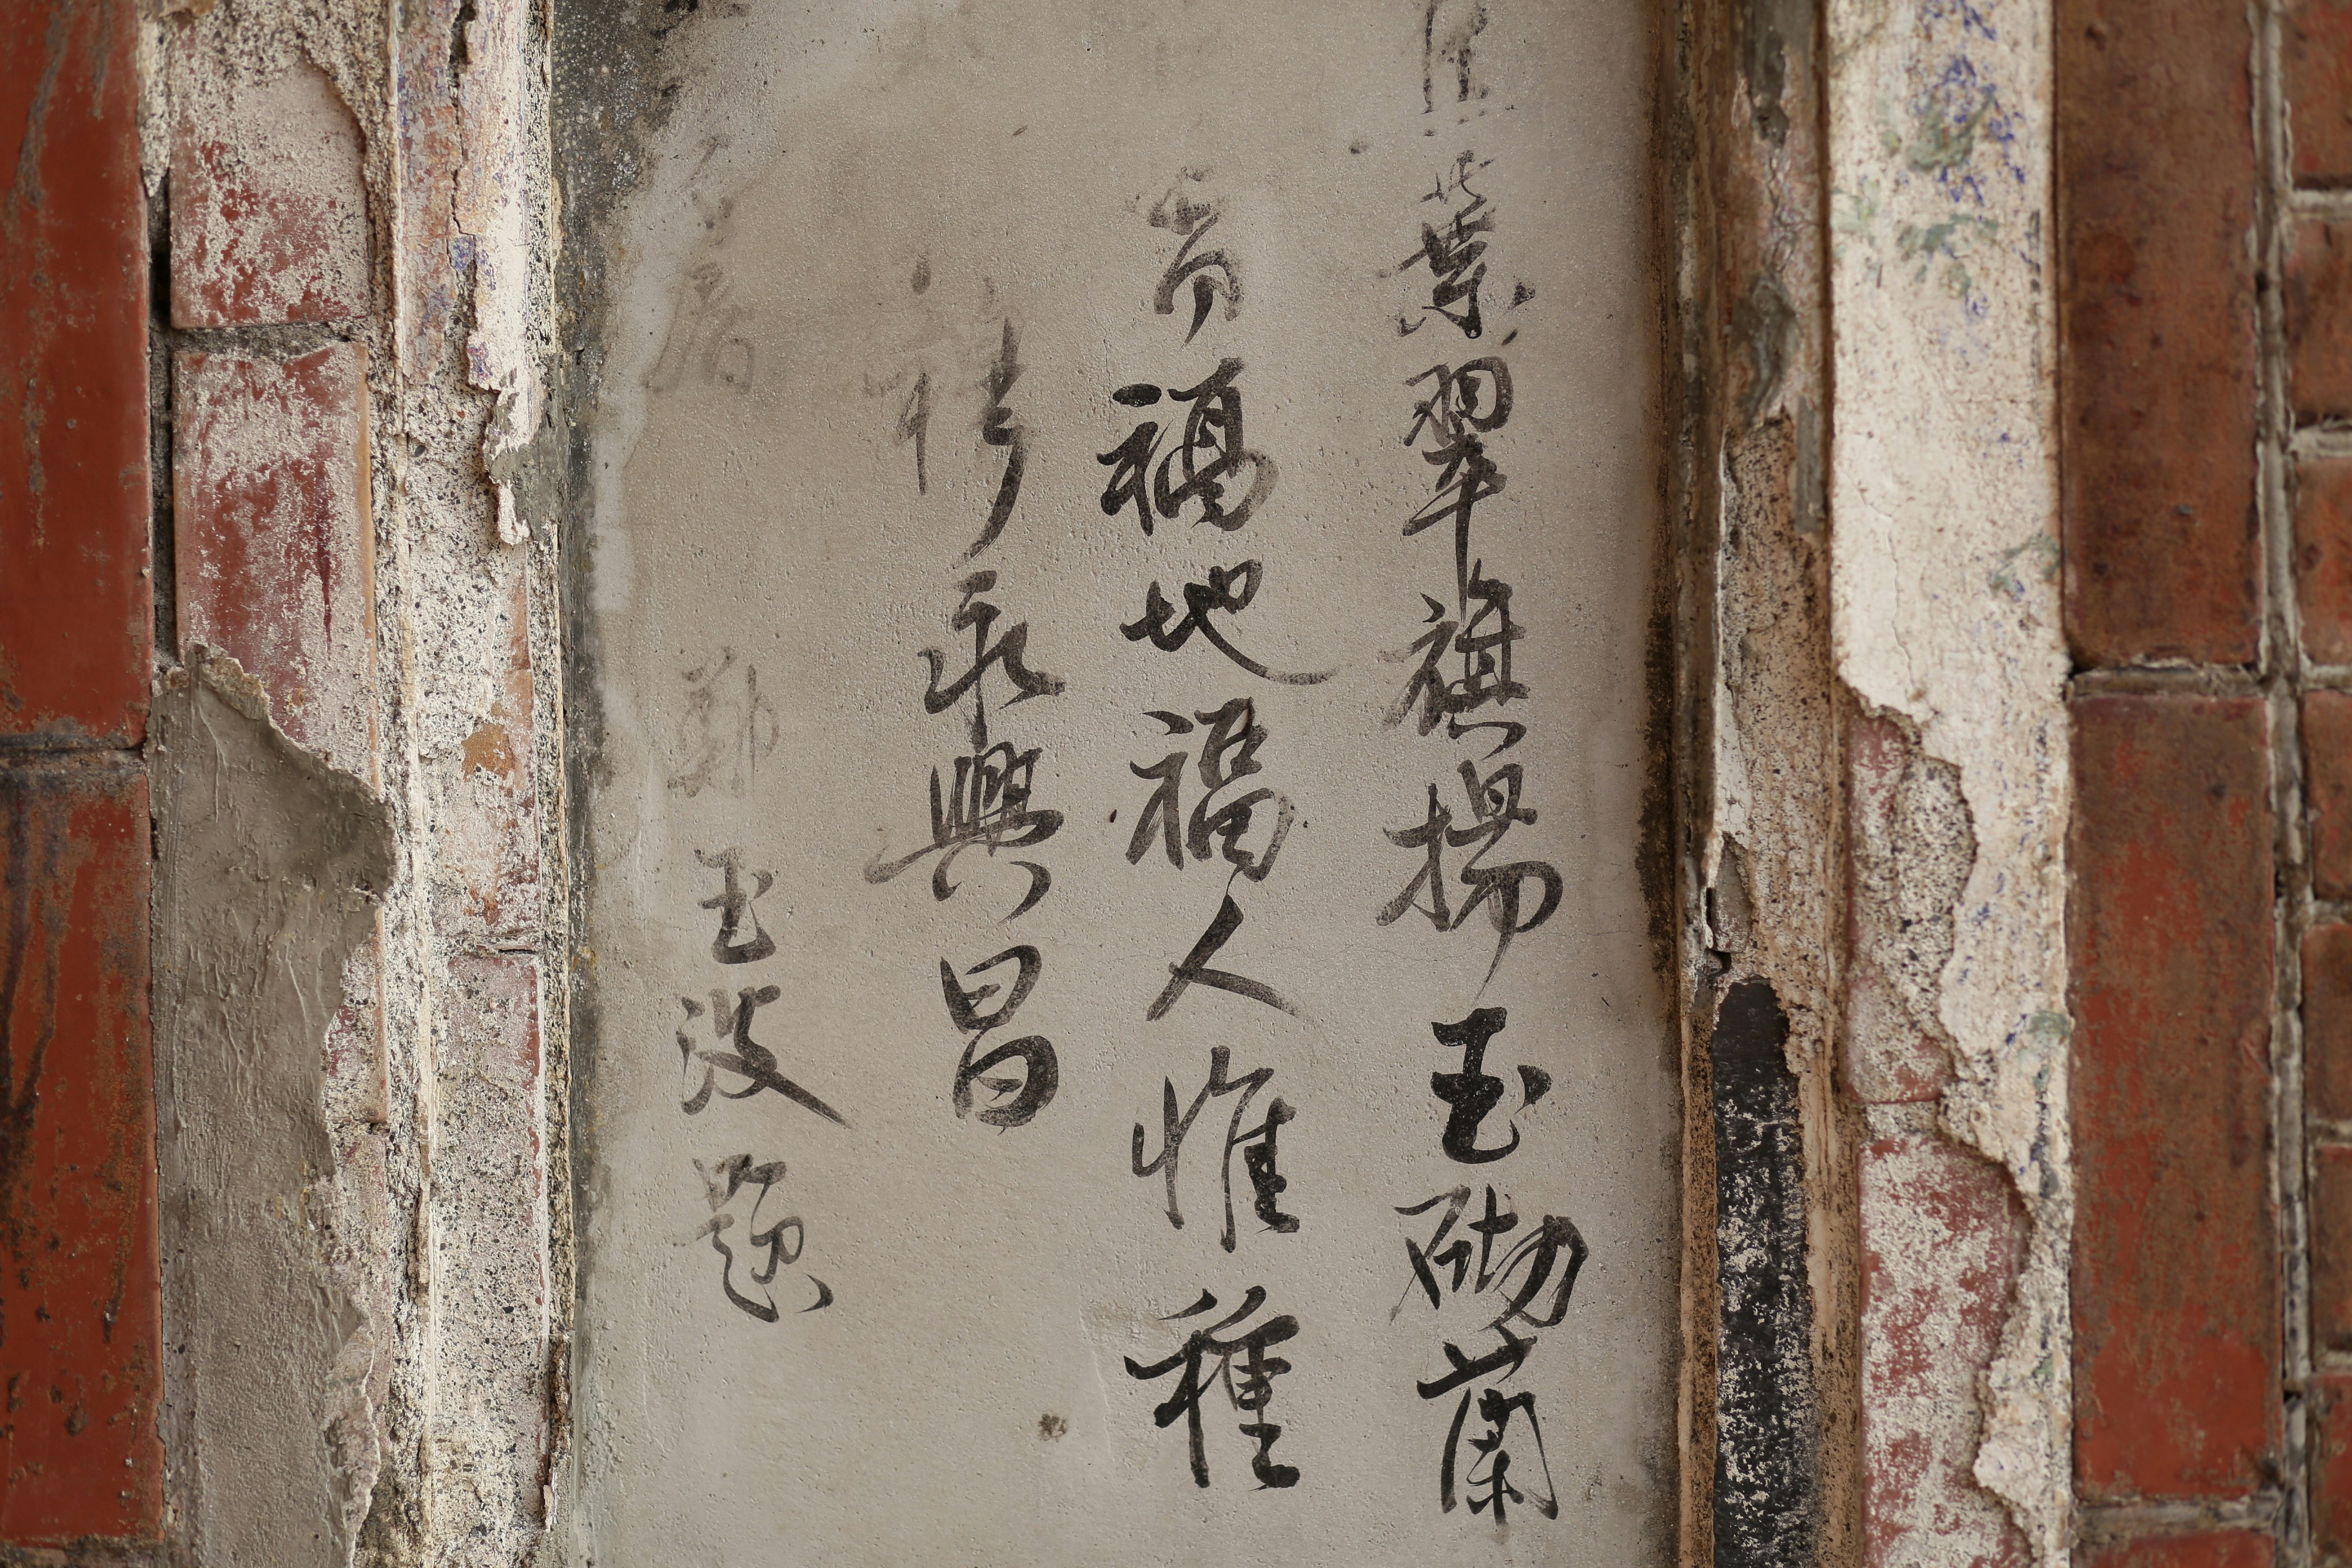 蕉葉翠旗揚玉砌蘭
香福地福人惟種
德永興昌
居
鄭玉波題